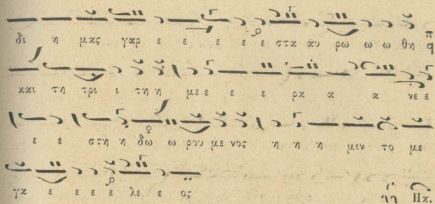 δι η μας γαρ ε ε ε ε ε στα αυ ρω ω ω θη
και τη τρι ι τη η με ε ε ε ρα α α νε ε
ε ε στη η δω ω ρου με νος η η η μιν το με
γα ε ε ε ε λε ε ος Πχ.